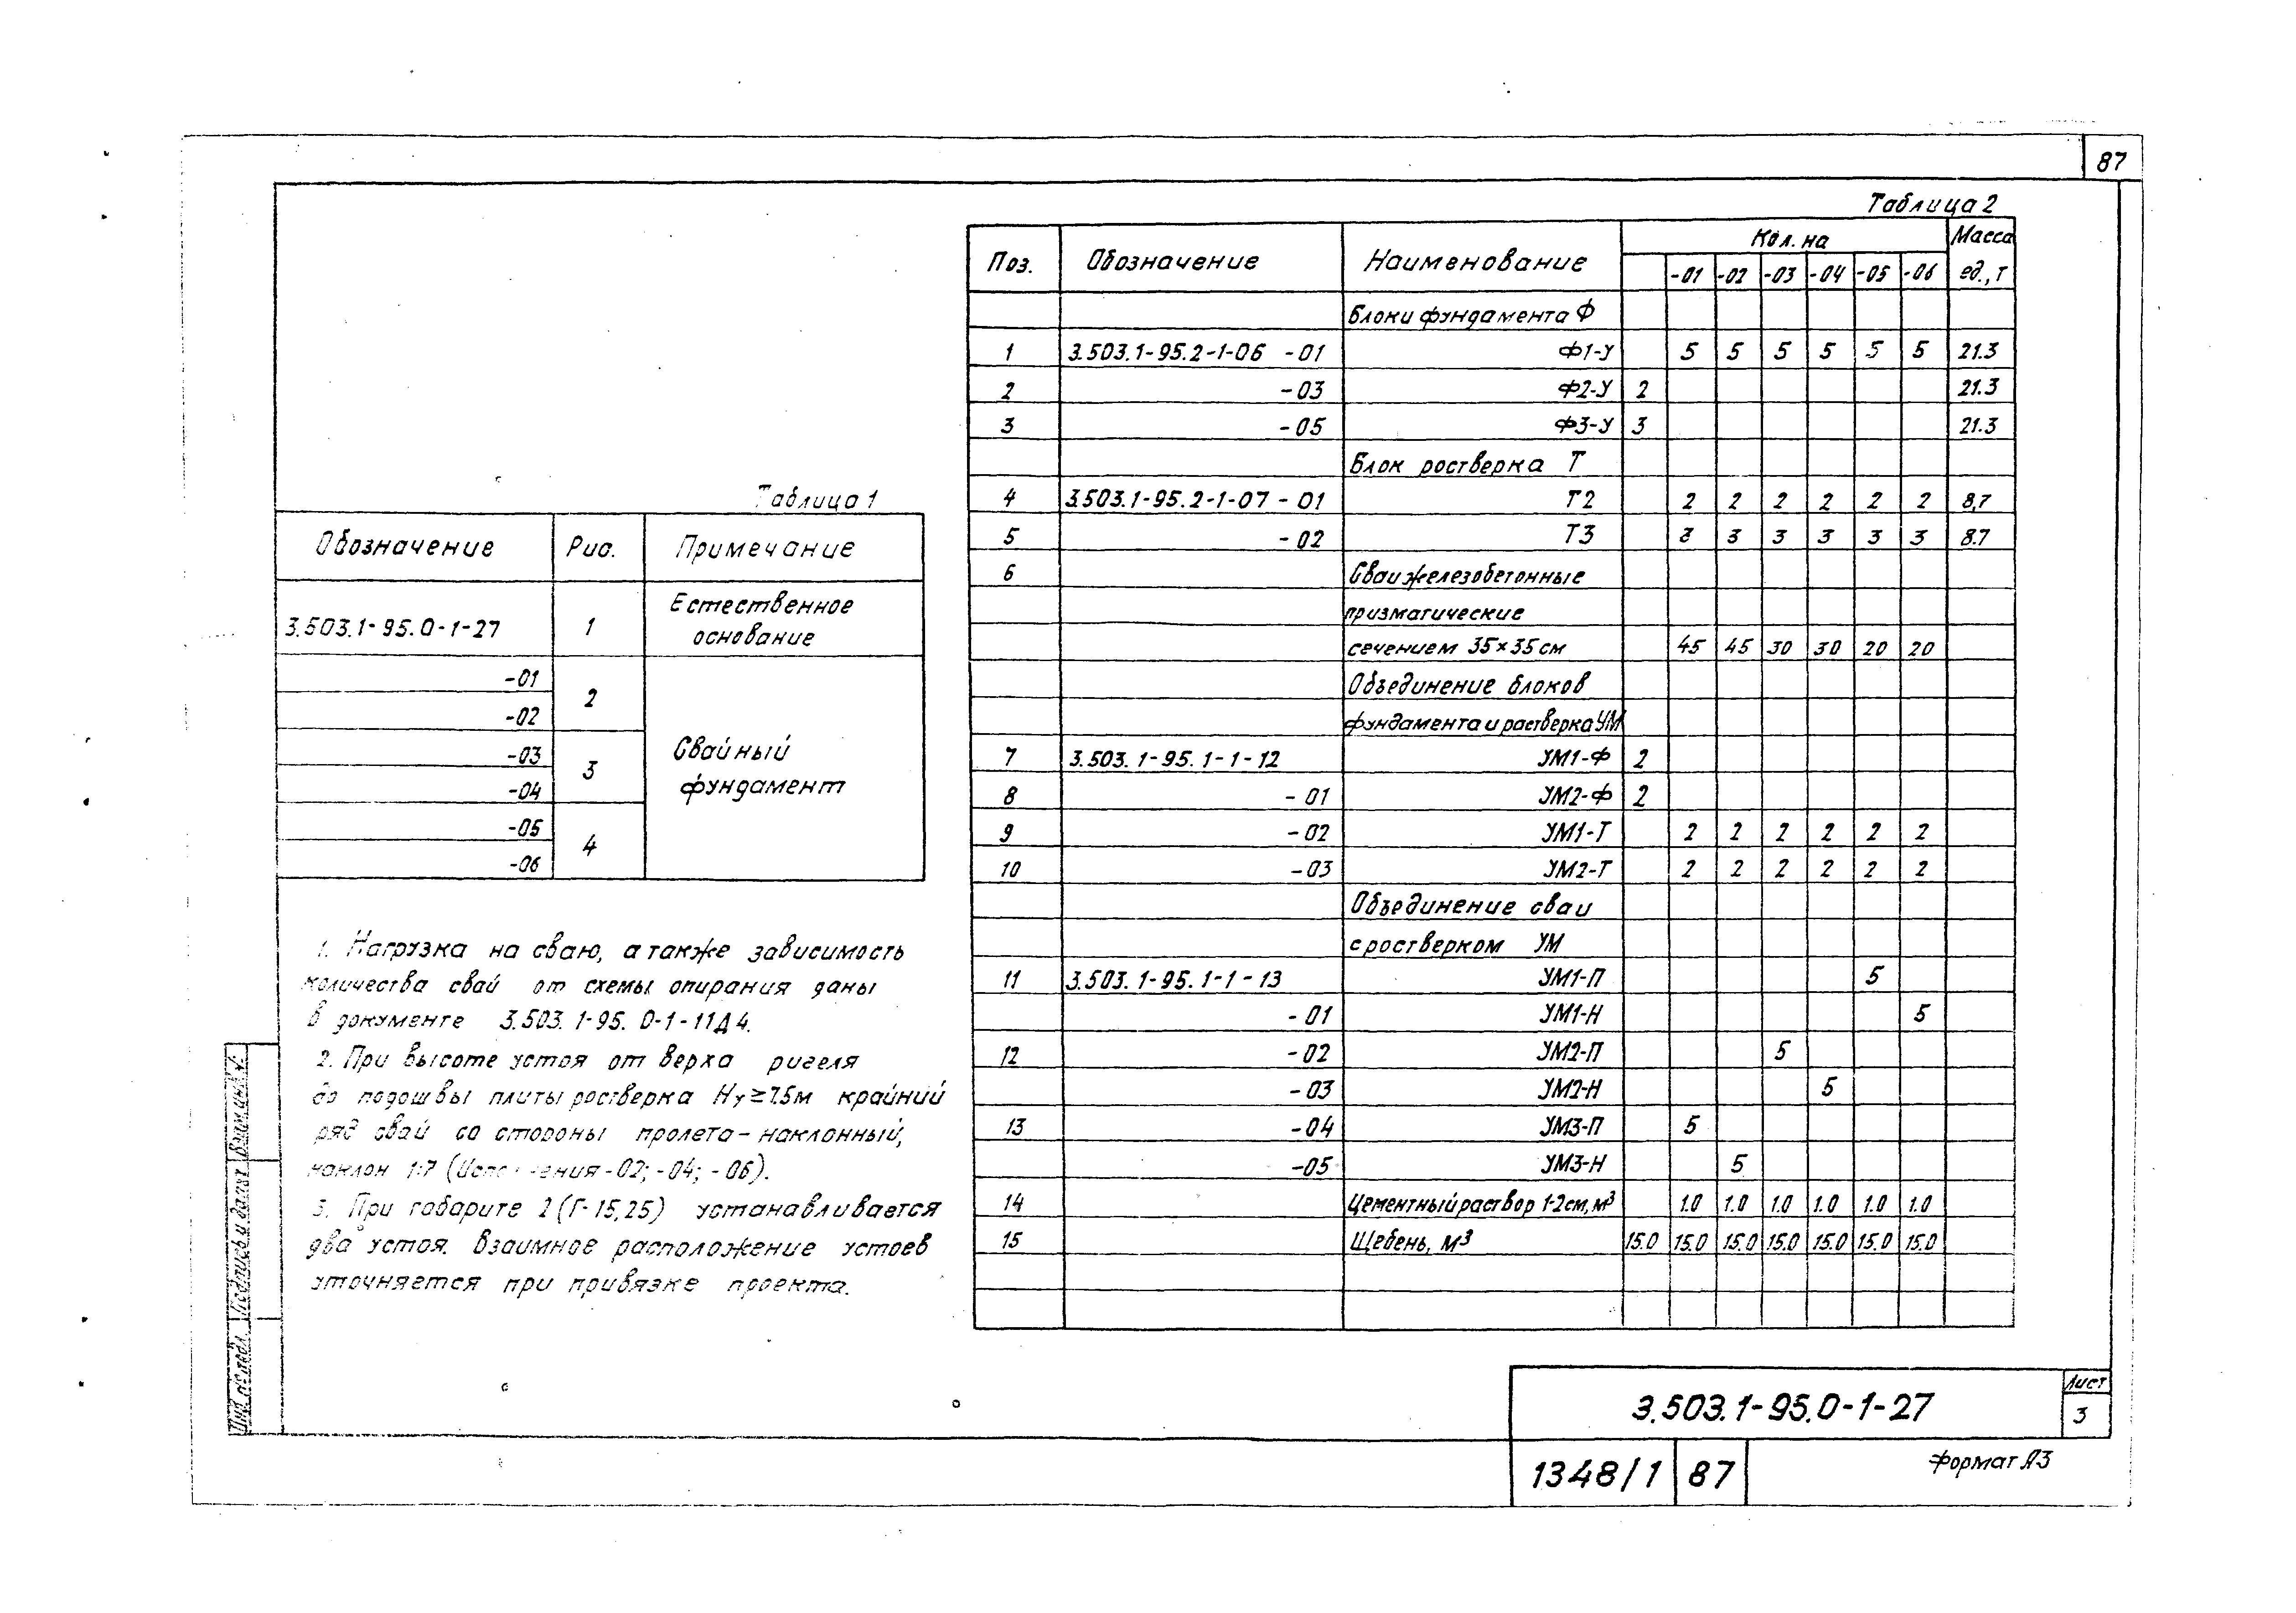 87
Таблица 1
Обозначение Рис. Примечание
3.503.1-95.0-1-27 1 Естественное
основание
-01
2
-02
-03 Свайный
3
-04 фундамент
-05
4
-06
1. Нагрузка на сваю, а также зависимость
количества свай от схемы опирания даны
в документе 3.503.1-95.0-1-11Д4.
2. При высоте устоя от верха ригеля
до подошвы плиты ростверка Ну≥7.5м крайний
ряд свай со стороны пролета-наклонный,
наклон 1:7 (-02; -04; -06).
3. При габарите 2(Г-15,25) устанавливается
два устоя. Взаимное расположение устоев
уточняется при привязке проекта.
Таблица 2
Поз. Обозначение Наименование Кол. на Масса
-01 -02 -03 -04 -05 -06 ед., т
Блоки фундамента Ф
1 3.503.1-95.2-1-06 -01 Ф1-У 5 5 5 5 5 5 21.3
2 -03 Ф2-У 2 21.3
3 -05 Ф3-У 3 21.3
Блок ростверка Т
4 3.503.1-95.2-1-07 -01 Т2 2 2 2 2 2 2 8,7
5 -02 Т3 3 3 3 3 3 3 8.7
6 Сваи железобетонные
призматические
сечением 35×35 см 45 45 30 30 20 20
Объединение блоков
фундамента и растверка УМ
7 3.503.1-95.1-1-12 УМ1-Ф 2
8 -01 УМ2-Ф 2
9 -02 УМ1-Т 2 2 2 2 2 2
10 -03 УМ2-Т 2 2 2 2 2 2
Объединение сваи
с ростверком УМ
11 3.503.1-95.1-1-13 УМ1-П 5
-01 УМ1-Н 5
12 -02 УМ2-П 5
-03 УМ2-Н 5
13 -04 УМ3-П 5
-05 УМ3-Н 5
14 Цементный раствор 1-2см, м³ 1.0 1.0 1.0 1.0 1.0 1.0
15 Щебень, м³ 15.0 15.0 15.0 15.0 15.0 15.0 15.0
Инв. № подл. Подпись и дата Взам. инв. №
3.503.1-95.0-1-27 Лист
3
1348/1 87 Формат А3